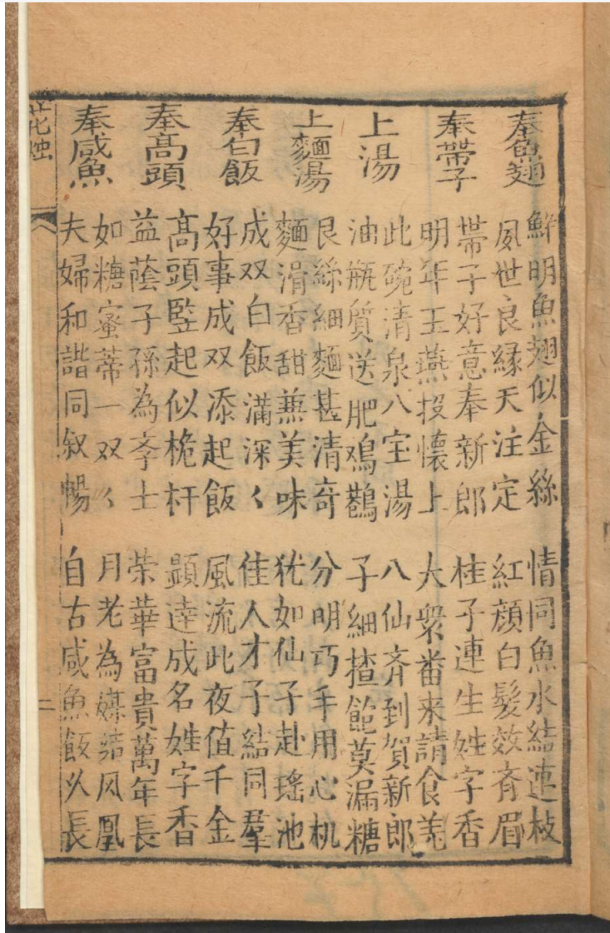 奉魚翅
鮮明魚翅似金絲 情同魚水結連枝
夙世良緣天注定 紅顔白髮效斉眉
奉帶子
帶子好意奉新郎 桂子連生姓字香
明年玉燕投懷上 大衆畨来請食羗
上湯
此碗清泉八宝湯 八仙斉到賀新郎
油瓶質送肥鳮鵝 子細揸飽莫漏糖
上麵湯
艮絲細麵甚清奇 分明巧手用心机
麵滑香甜兼美味 犹如仙子赴瑶池
奉白飯
成双白飯滿深〱 佳人才子結同羣
好事成双添起飯 風流此夜值千金
奉高頭
高頭竪起似桅杆 顕達成名姓字香
益蔭子孫為孝士 荣華富貴萬年長
奉咸魚
如糖蜜蒂一双〱 月老為媒結凤凰
夫婦和諧同叙暢 自古咸魚飯以長
二